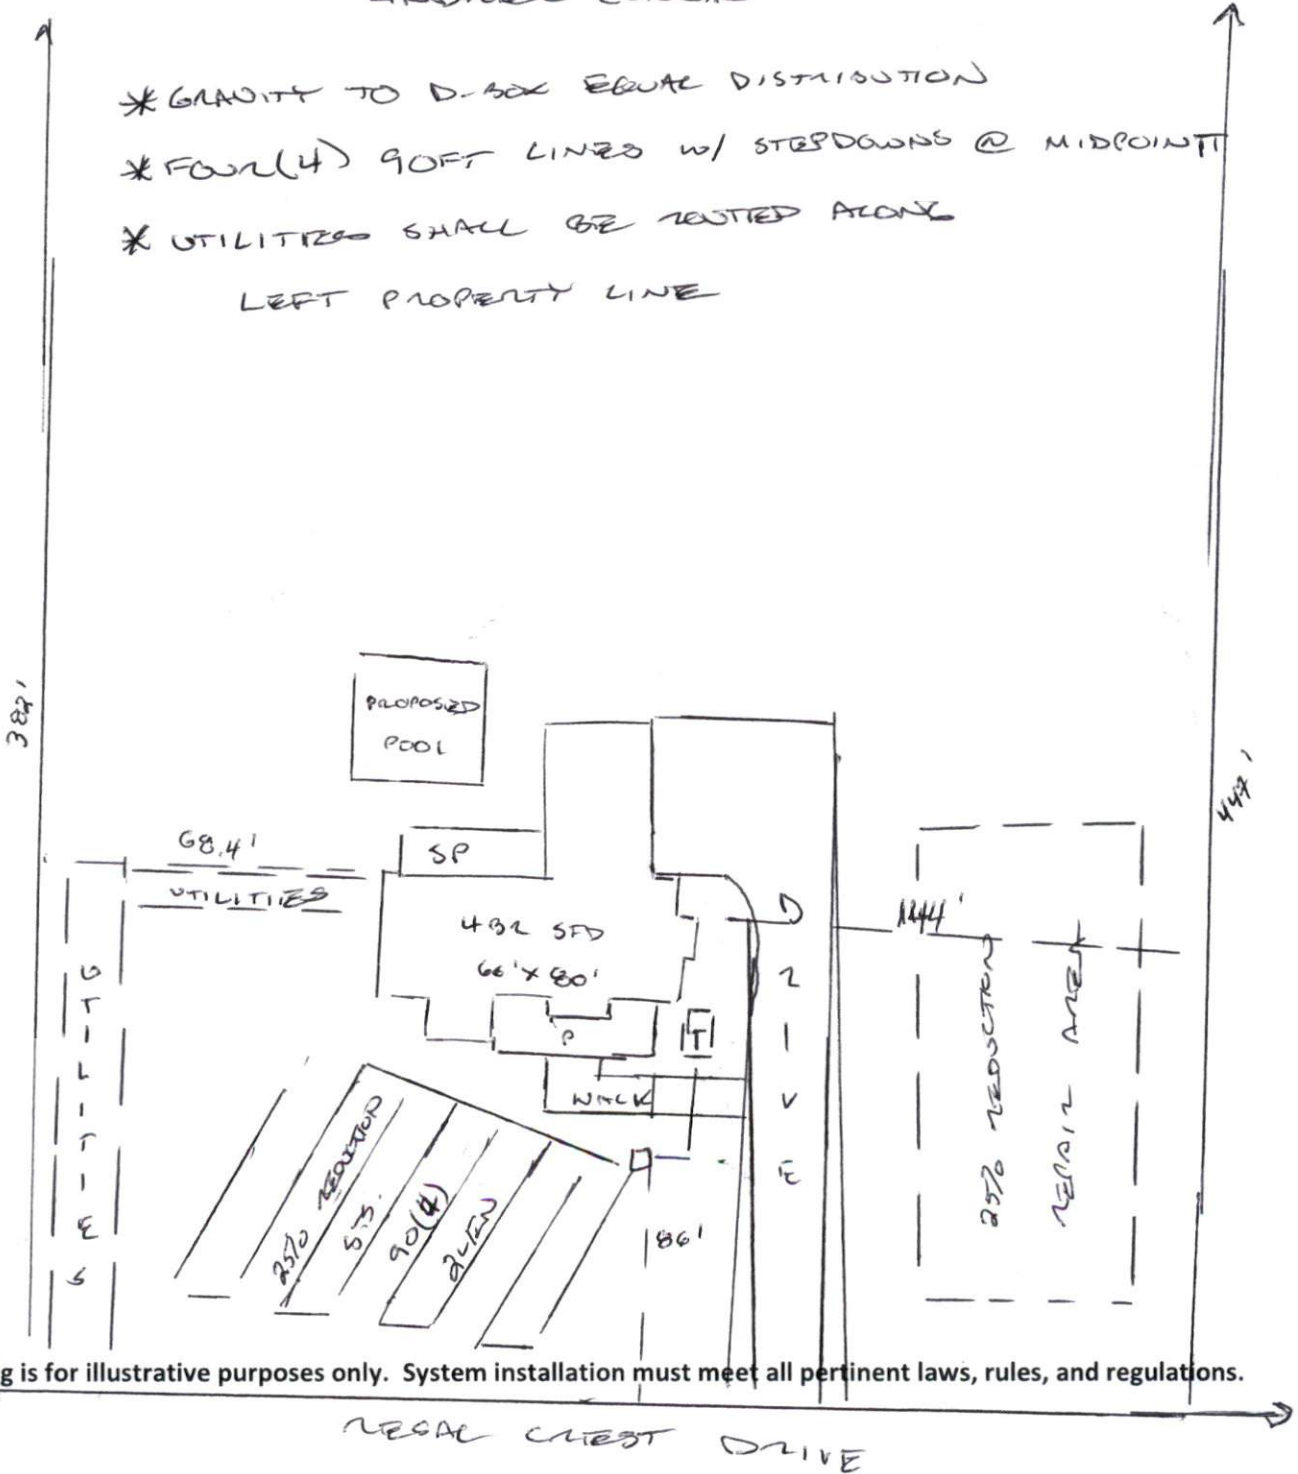 * GRAVITY TO D-BOX EQUAL DISTRIBUTION
* FOUR(4) 90FT LINES W/ STEPDOWNS @ MIDPOINT
* UTILITIES SHALL BE ROUTED ALONG
LEFT PROPERTY LINE
382'
447'
PROPOSED
POOL
68.4'
UTILITIES
SP
4BR SFD
66' X 80'
P
T
WALK
DRIVE
144'
UTILITIES
25% REDUCTION
90(4)
25% REDUCTION
REPAIR AREA
86'
g is for illustrative purposes only. System installation must meet all pertinent laws, rules, and regulations.
REGAL CREST DRIVE